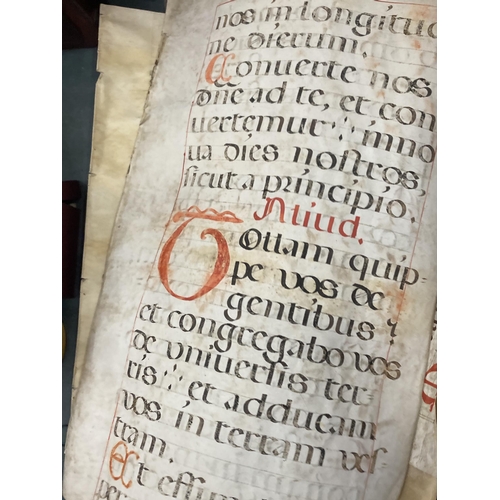 nos in longitud
ne dierum.
Conuerte nos
Dñe ad te, et con
uertemur ∴ inno
ua dies nostros,
sicut a principio.
Aliud.
Tollam quip=
pe vos de
gentibus
et congregabo vos
de vniuersis ter
ris ∴ et adducam
vos in terram ves
tram.
Et effun